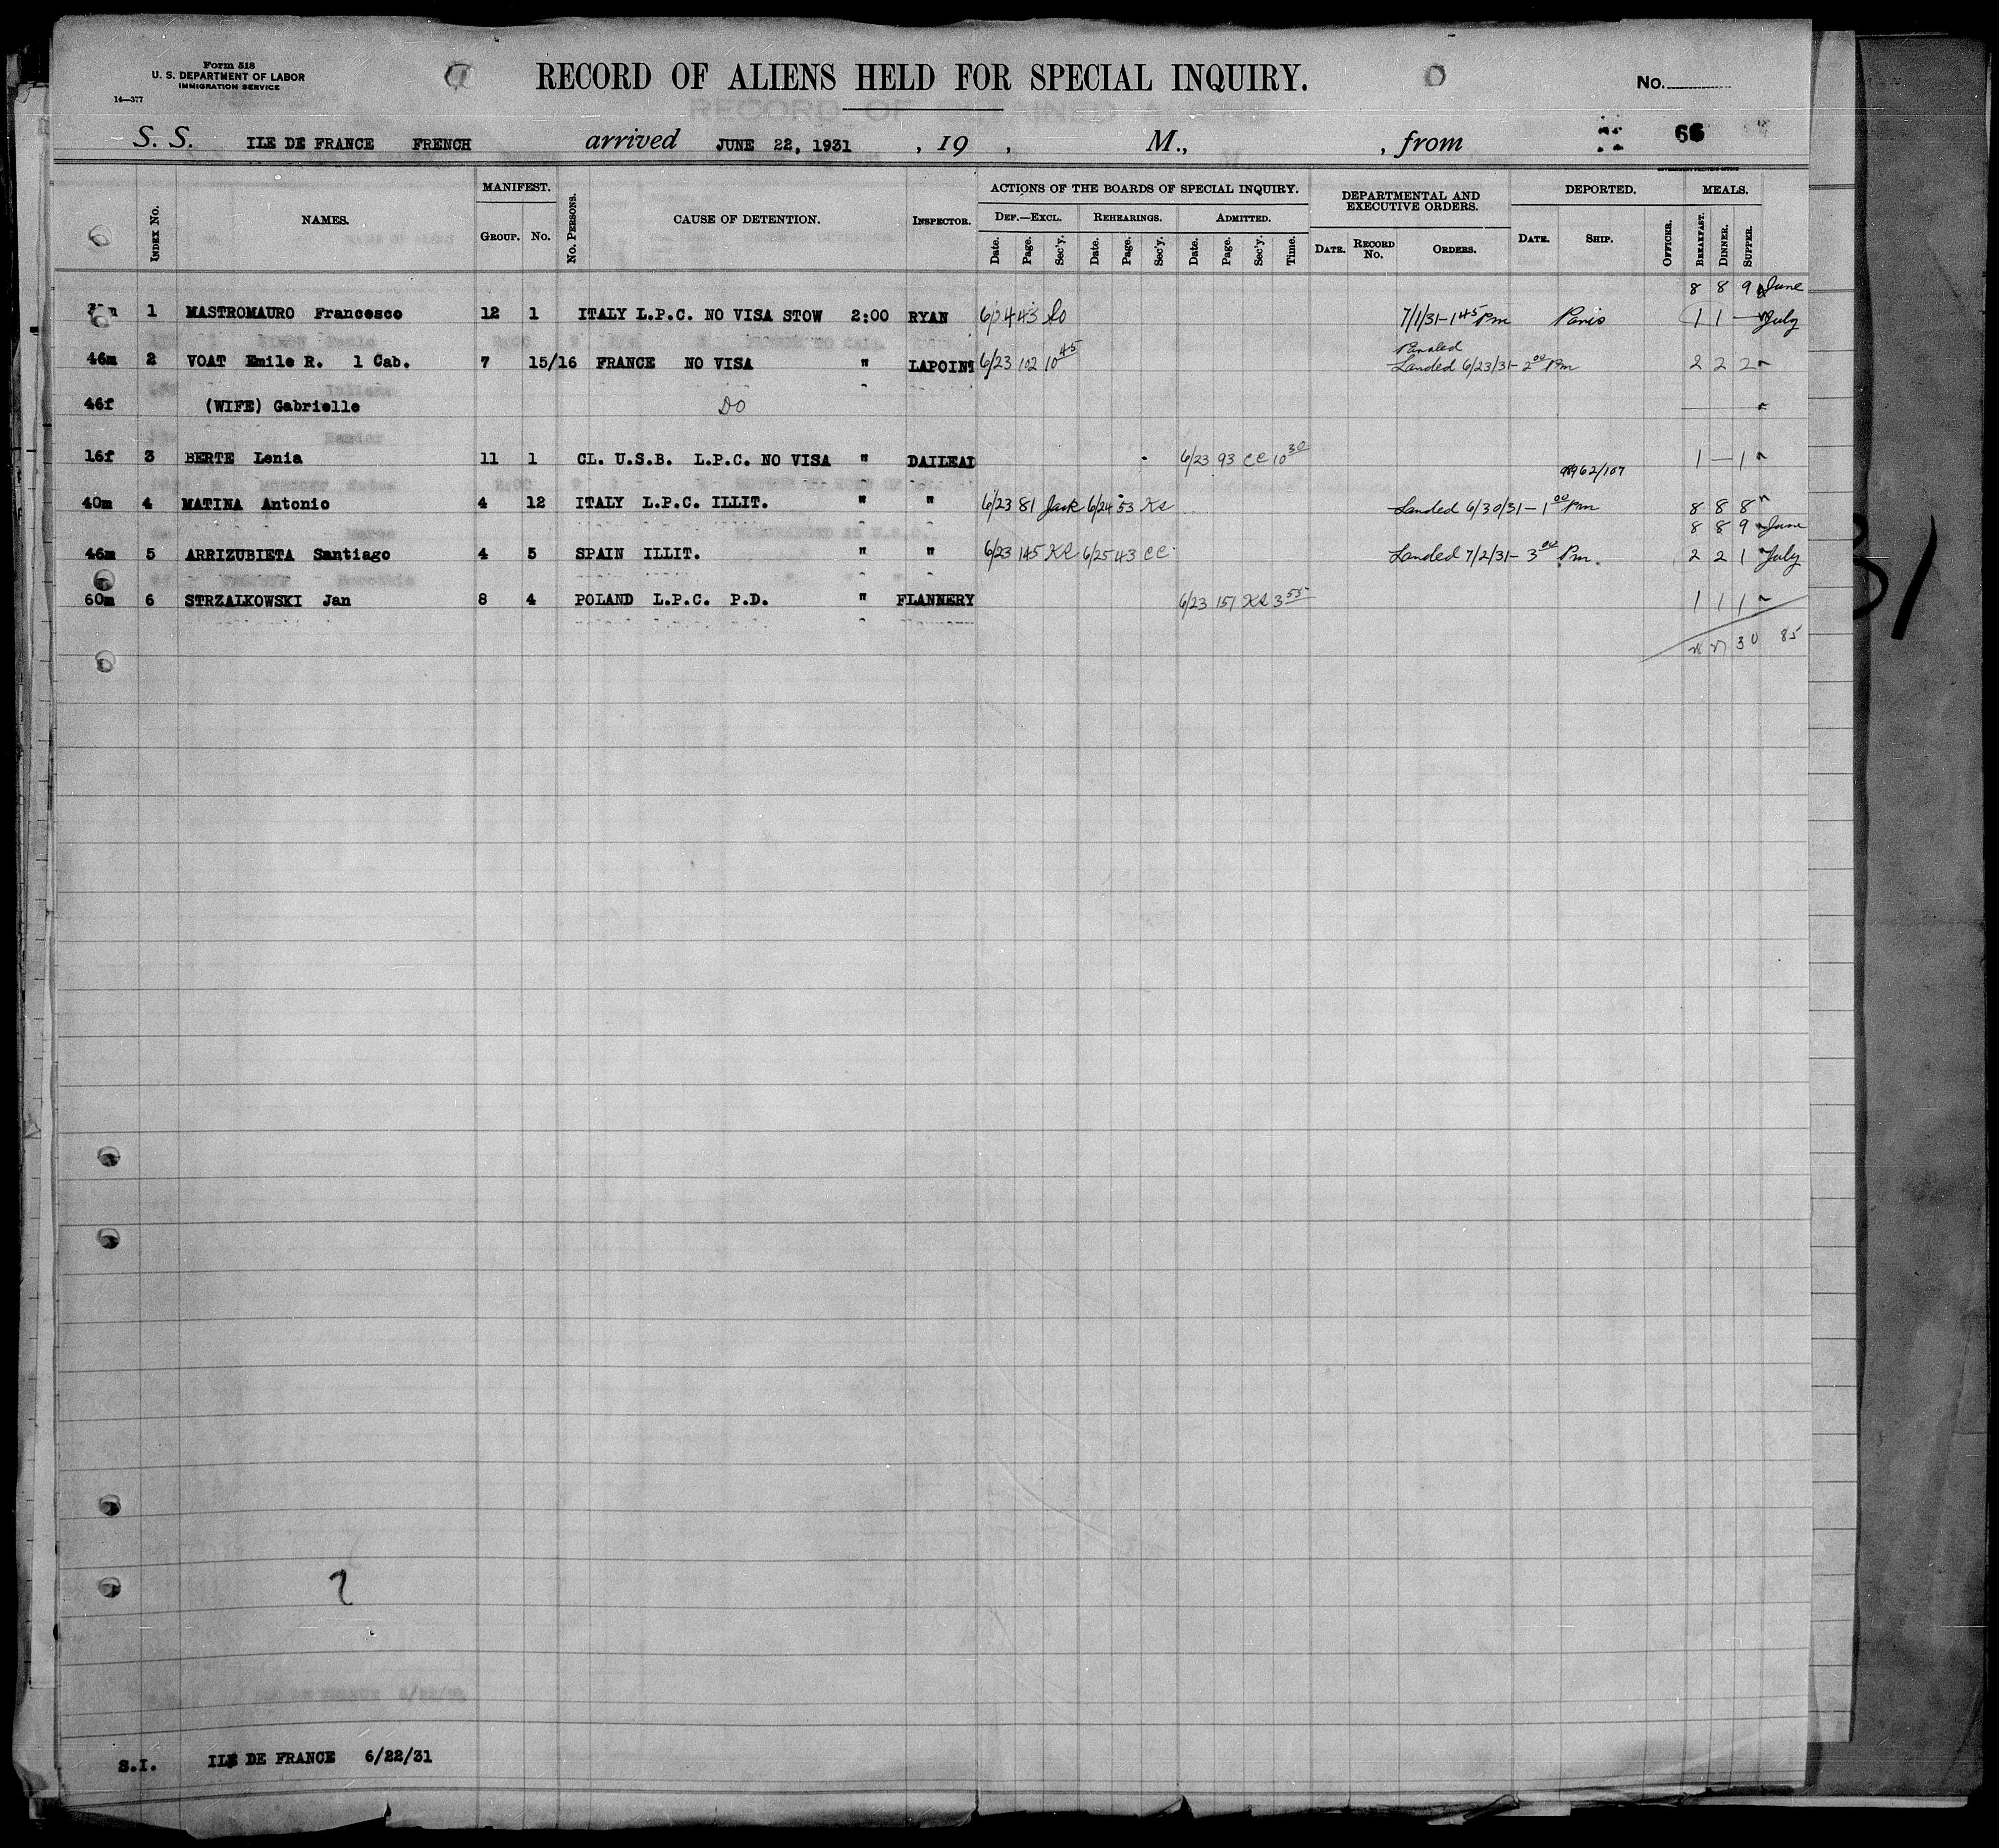 Form 518
U. S. DEPARTMENT OF LABOR
IMMIGRATION SERVICE
14—377
RECORD OF ALIENS HELD FOR SPECIAL INQUIRY.
No.
S. S. ILE DE FRANCE FRENCH arrived JUNE 22, 1931 , 19 , M., , from 66
INDEX No. NAMES. MANIFEST. GROUP. No. No. PERSONS. CAUSE OF DETENTION. INSPECTOR. ACTIONS OF THE BOARDS OF SPECIAL INQUIRY. DEF.—EXCL. Date. Page. Sec'y. REHEARINGS. Date. Page. Sec'y. ADMITTED. Date. Page. Sec'y. Time. DEPARTMENTAL AND EXECUTIVE ORDERS. DATE. RECORD No. ORDERS. DEPORTED. DATE. SHIP. OFFICER. MEALS. BREAKFAST. DINNER. SUPPER.
8 8 9 June
1 MASTROMAURO Francesco 12 1 ITALY L.P.C. NO VISA STOW 2:00 RYAN 6/24 43 7/1/31-1 45 Pm Paris 1 1 — July
46m 2 VOAT Emile R. 1 Cab. 7 15/16 FRANCE NO VISA " LAPOINT 6/23 102 10 45 Landed 6/23/31-2 00 Pm 2 2 2
46f (WIFE) Gabrielle DO
16f 3 BERTE Lenia 11 1 CL. U.S.B. L.P.C. NO VISA " DAILEAD 6/23 93 CC 10 30 1 — 1
62/107
40m 4 MATINA Antonio 4 12 ITALY L.P.C. ILLIT. " " 6/23 81 Jack 6/24 53 KS Landed 6/30/31-1 00 Pm 8 8 8
8 8 9 June
46m 5 ARRIZUBIETA Santiago 4 5 SPAIN ILLIT. " " 6/23 145 KS 6/25 43 CC Landed 7/2/31-3 00 Pm. 2 2 1 July
60m 6 STRZALKOWSKI Jan 8 4 POLAND L.P.C. P.D. " FLANNERY 6/23 151 KS 3 55 1 1 1
30 85
S.I. ILE DE FRANCE 6/22/31